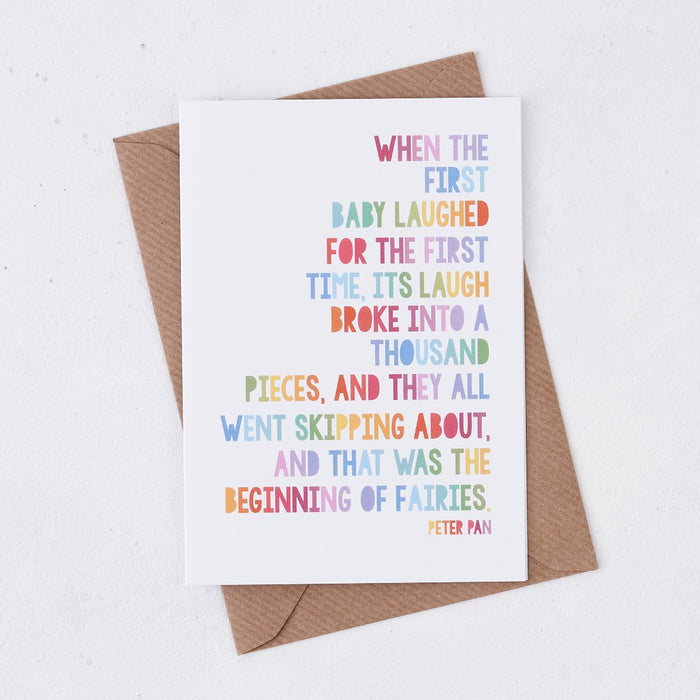 WHEN THE
FIRST
BABY LAUGHED
FOR THE FIRST
TIME, ITS LAUGH
BROKE INTO A
THOUSAND
PIECES, AND THEY ALL
WENT SKIPPING ABOUT,
AND THAT WAS THE
BEGINNING OF FAIRIES.
PETER PAN